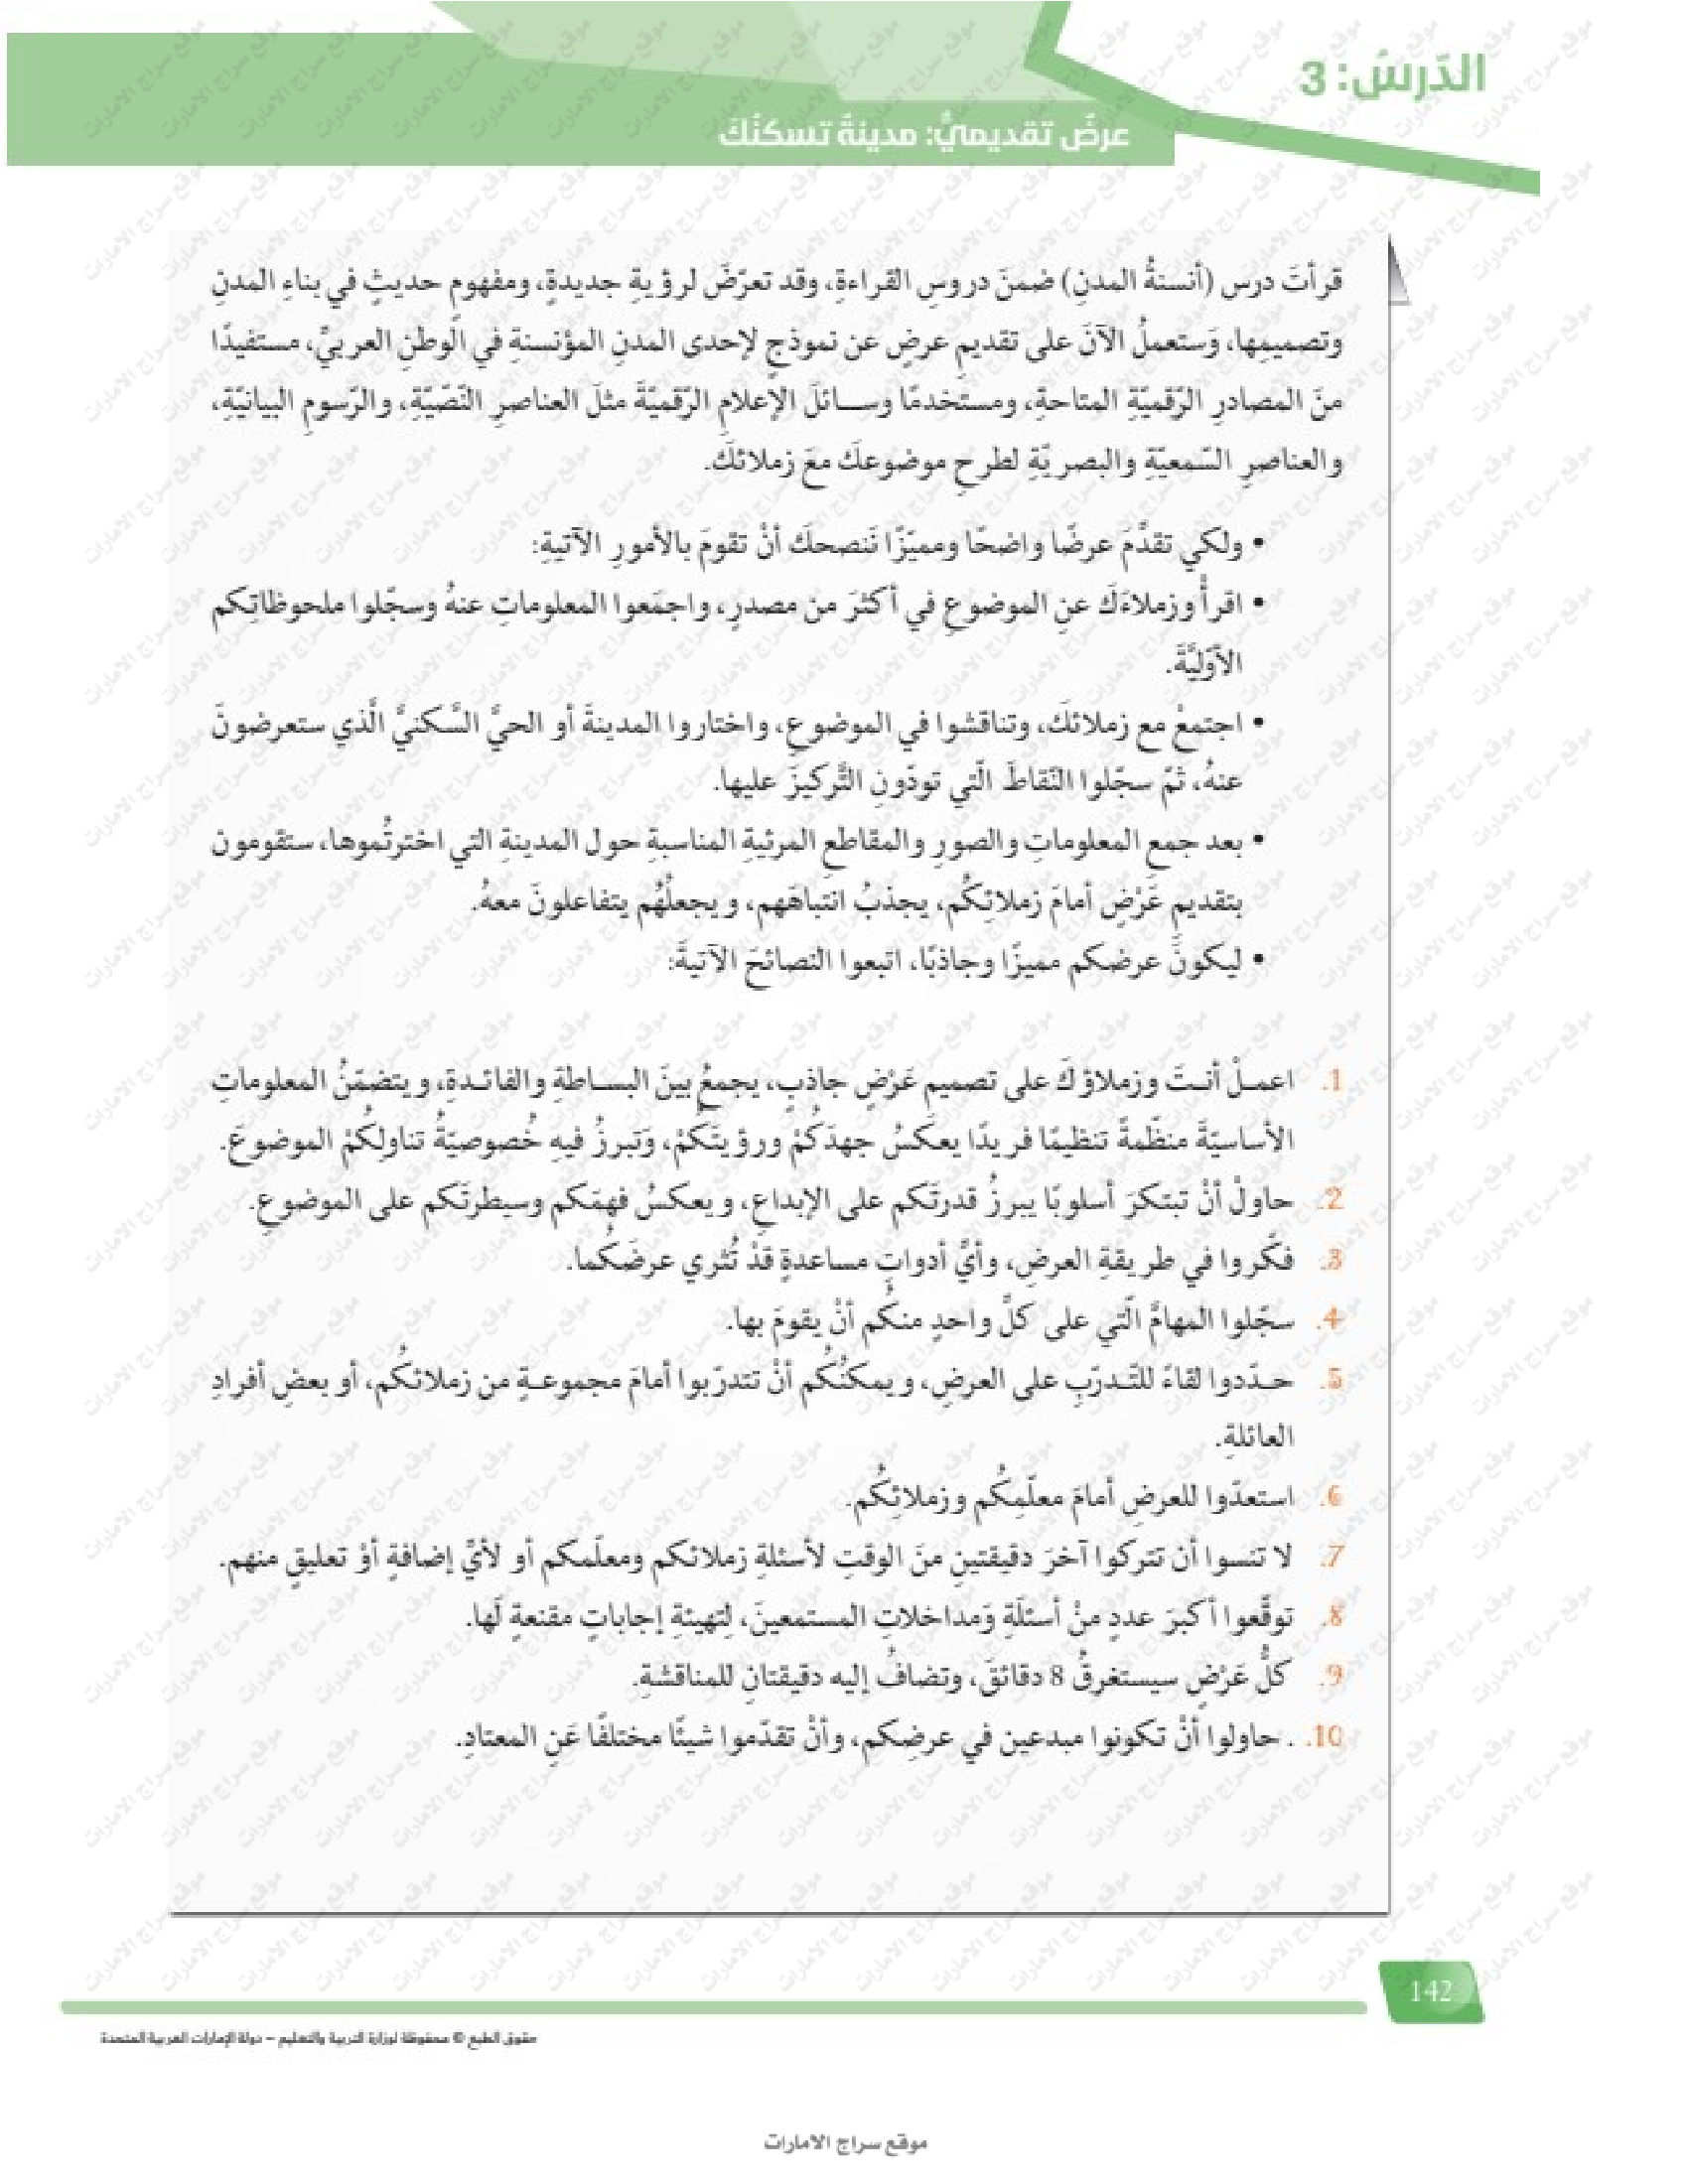 الدّرسُ: 3
عرضٌ تقديميٌّ: مدينةٌ تسكنُكَ
قرأتَ درس (أنسنةُ المدنِ) ضمنَ دروسِ القراءةِ، وقد تعرّضَ لرؤيةٍ جديدةٍ، ومفهومٍ حديثٍ في بناءِ المدنِ
وتصميمِها، وَستعملُ الآنَ على تقديمِ عرضٍ عن نموذجٍ لإحدى المدنِ المؤنسنةِ في الوطنِ العربيِّ، مستفيدًا
منَ المصادرِ الرّقميّةِ المتاحةِ، ومستَخدمًا وسـائلَ الإعلامِ الرّقميّةَ مثلَ العناصرِ النّصّيّةِ، والرّسومِ البيانيّةِ،
والعناصرِ السّمعيّةِ والبصريّةِ لطرحِ موضوعكَ معَ زملائكَ.
• ولكي تقدّمَ عرضًا واضحًا ومميّزًا نَنصحكَ أنْ تقومَ بالأمورِ الآتيةِ:
• اقرأْ وزملاءَكَ عنِ الموضوعِ في أكثرَ من مصدرٍ، واجمَعوا المعلوماتِ عنهُ وسجّلوا ملحوظاتِكم
الأوّليَّةَ.
• اجتمعْ مع زملائكَ، وتناقشوا في الموضوعِ، واختاروا المدينةَ أو الحيَّ السَّكنيَّ الَّذي ستعرضونَ
عنهُ، ثمّ سجّلوا النّقاطَ الّتي تودّونِ التَّركيزَ عليها.
• بعد جمعِ المعلوماتِ والصورِ والمقاطعِ المرئيةِ المناسبةِ حول المدينةِ التي اخترتُموها، ستقومون
بتقديمِ عَرْضٍ أمامَ زملائِكُم، يجذبُ انتباهَهم، ويجعلُهُم يتفاعلونَ معهُ.
• ليكونَ عرضكم مميزًا وجاذبًا، اتبعوا النصائحَ الآتيةَ:
1. اعمـلْ أنـتَ وزملاؤكَ على تصميمِ عَرْضٍ جاذبٍ، يجمعُ بينَ البسـاطةِ والفائـدةِ، ويتضمّنُ المعلوماتِ
الأساسيّةَ منظّمةً تنظيمًا فريدًا يعكسُ جهدَكُمْ ورؤيتَكُمْ، وَتبرزُ فيهِ خُصوصيّةُ تناولِكُمْ الموضوعَ.
2. حاولْ أنْ تبتكرَ أسلوبًا يبرزُ قدرتَكم على الإبداعِ، ويعكسُ فهمَكم وسيطرتَكم على الموضوعِ.
3. فكّروا في طريقةِ العرضِ، وأيِّ أدواتٍ مساعدةٍ قدْ تُثري عرضَكُما.
4. سجّلوا المهامَّ الّتي على كلّ واحدٍ منكُم أنْ يقومَ بها.
5. حـدّدوا لقاءً للتّـدرّبِ على العرضِ، ويمكنُكُم أنْ تتدرّبوا أمامَ مجموعـةٍ من زملائكُم، أو بعضِ أفرادِ
العائلةِ.
6. استعدّوا للعرضِ أمامَ معلّمِكُم وزملائِكُم.
7. لا تنسوا أن تتركوا آخرَ دقيقتينِ منَ الوقتِ لأسئلةِ زملائكم ومعلّمكم أو لأيِّ إضافةٍ أوْ تعليقٍ منهم.
8. توقّعوا أكبرَ عددٍ منْ أسئلَةِ وَمداخلاتِ المستمعينَ، لِتهيئةِ إجاباتٍ مقنعةٍ لَها.
9. كلُّ عَرْضٍ سيستغرقُ 8 دقائقَ، وتضافُ إليه دقيقتانِ للمناقشةِ.
10. . حاولوا أنْ تكونوا مبدعين في عرضِكم، وأنْ تقدّموا شيئًا مختلفًا عَنِ المعتادِ.
142
حقوق الطبع © محفوظة لوزارة التربية والتعليم – دولة الإمارات العربية المتحدة
موقع سراج الامارات